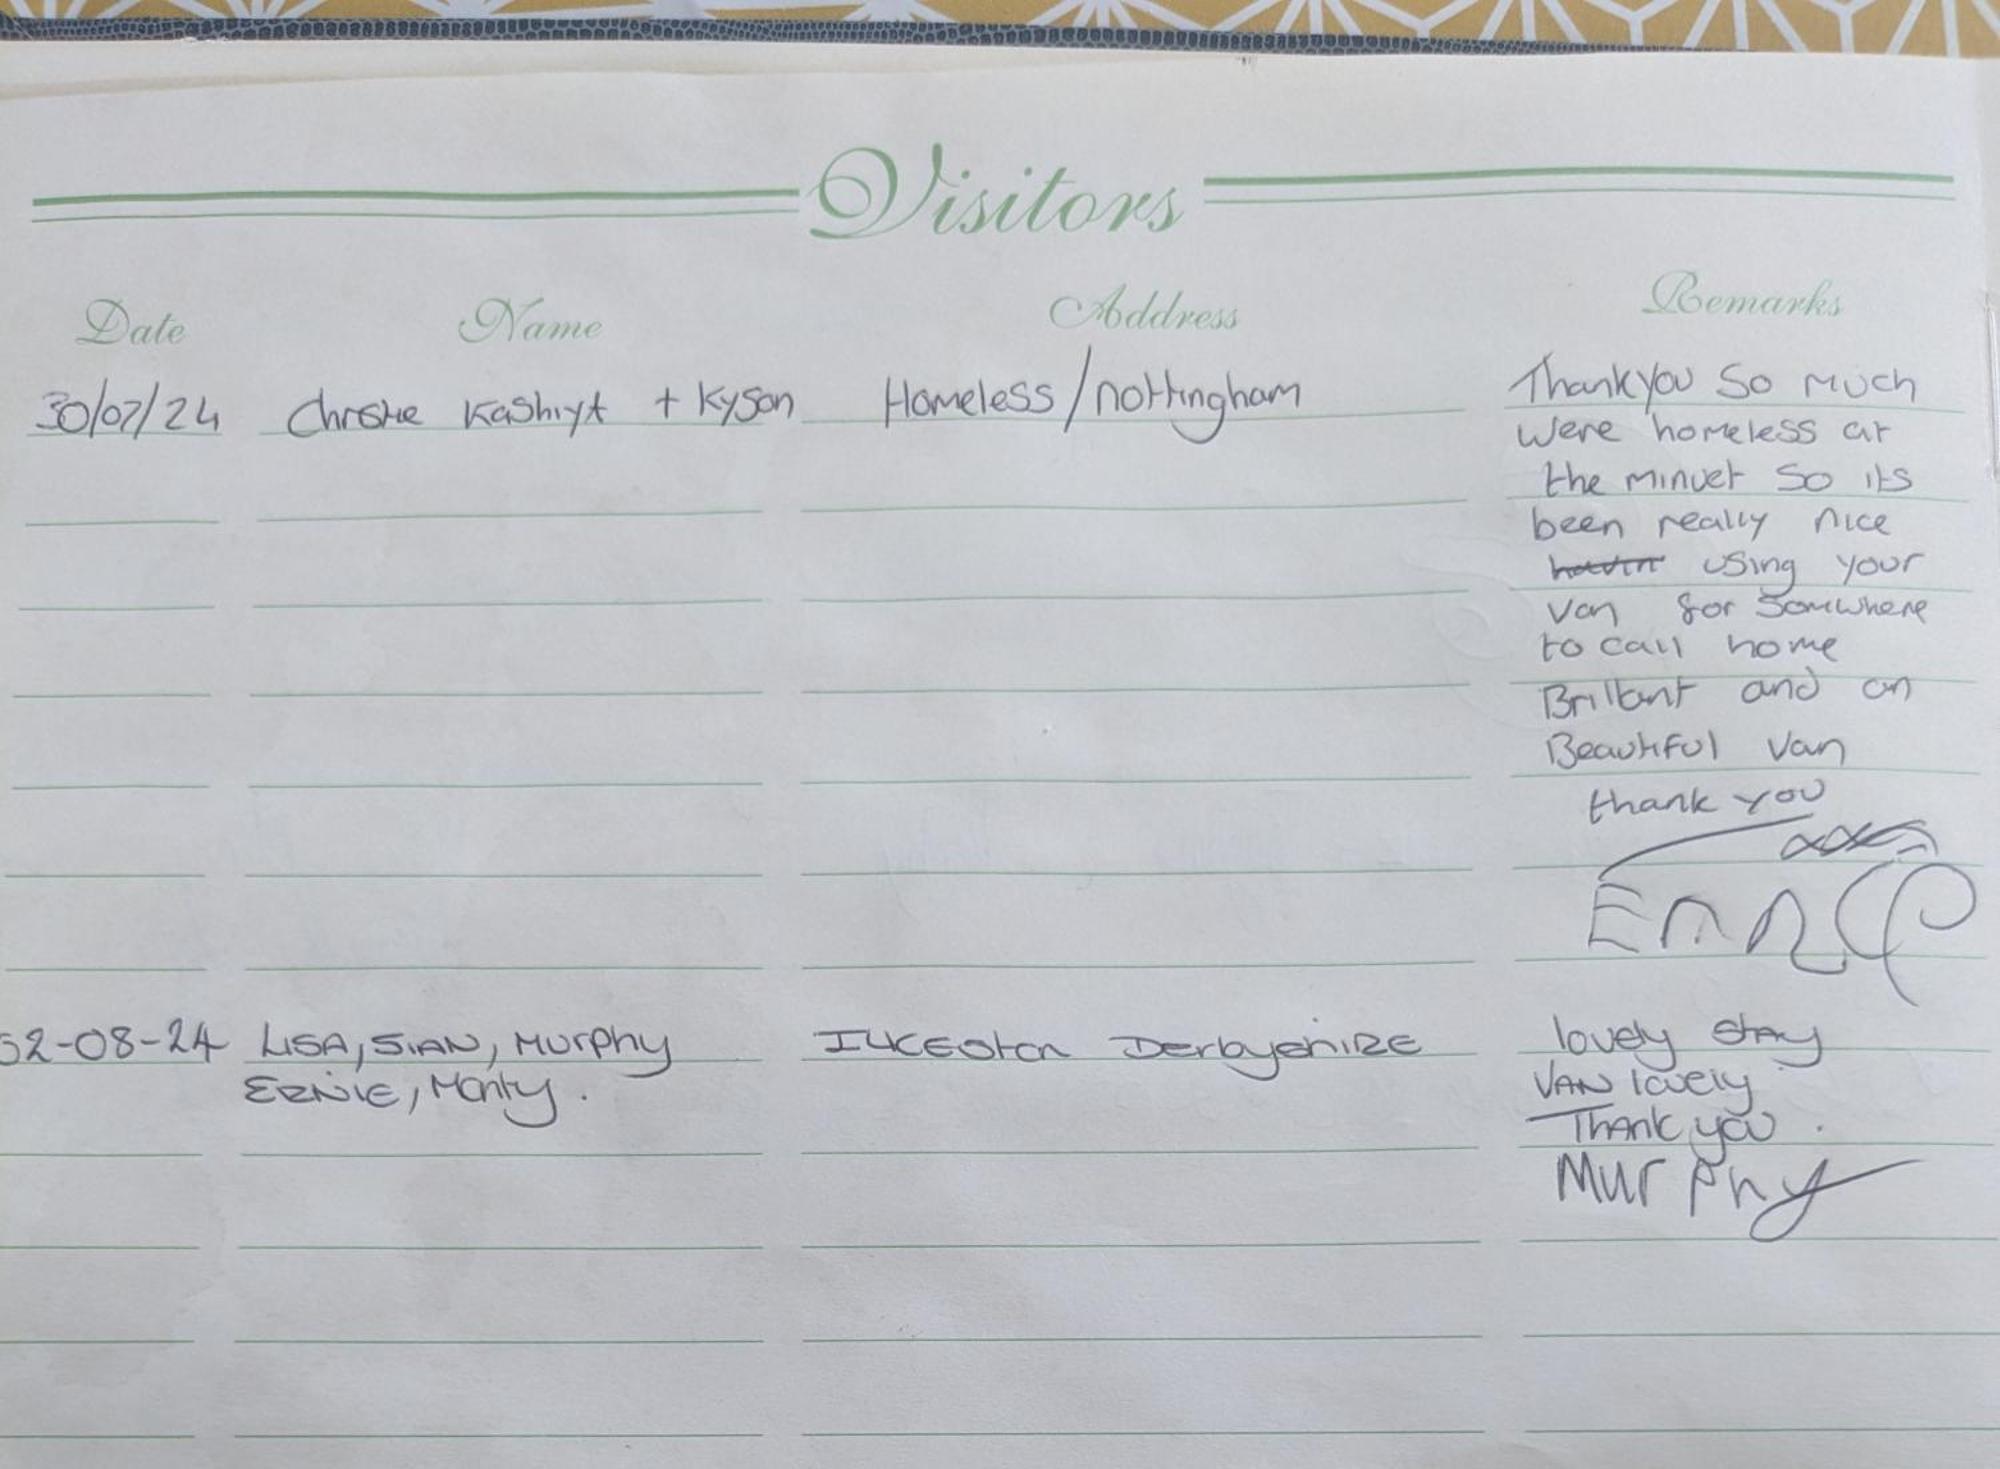 Visitors
Date Name Address Remarks
30/07/24 Christie Kashiyt + Kyson Homeless/nottingham Thankyou So much
were homeless at
the minuet so its
been really nice
using your
van for Somwhere
to call home
Brillant and an
Beautiful van
thank you
02-08-24 LISA, SIAN, Murphy ILKEston DerbyshiRE lovely stay
ERNIE, Monty. VAN lovely
Thank you.
Murphy